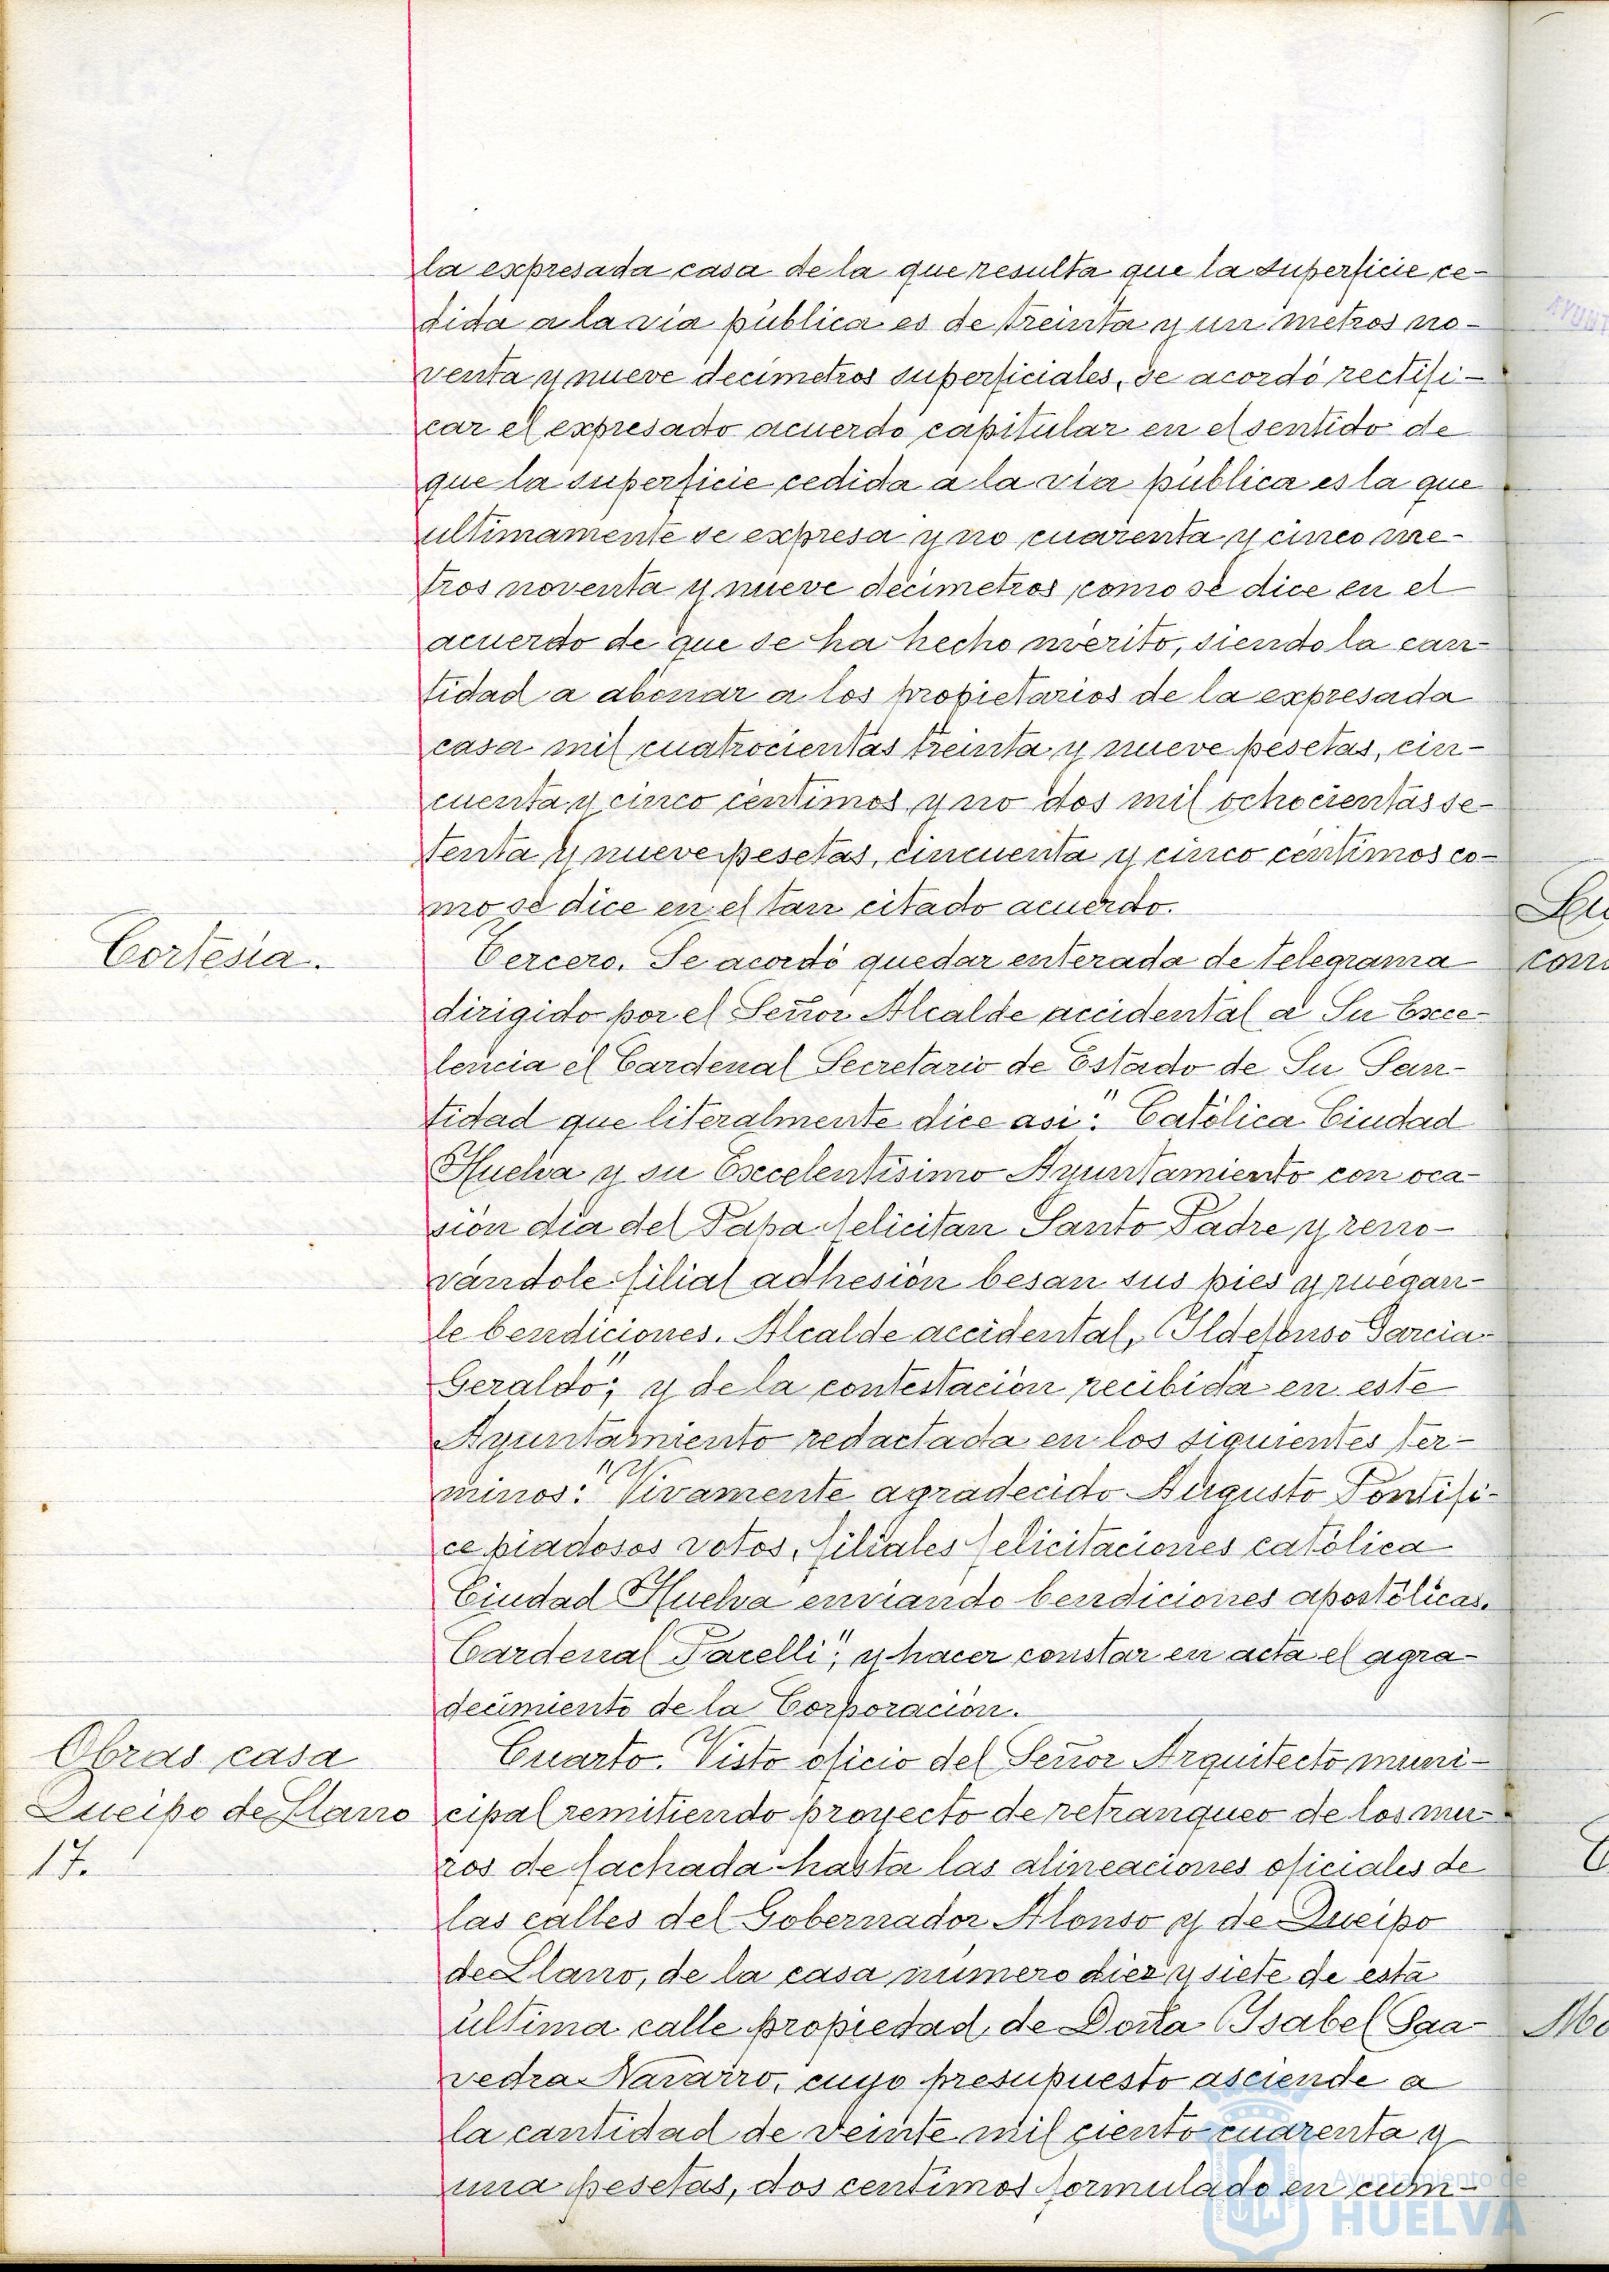 la expresada casa de la que resulta que la superficie ce-
dida a la via pública es de treinta y un metros no-
venta y nueve decímetros superficiales, se acordó rectifi-
car el expresado acuerdo capitular en el sentido de
que la superficie cedida a la via pública es la que
ultimamente se expresa y no cuarenta y cinco me-
tros noventa y nueve decimetros, como se dice en el
acuerdo de que se ha hecho mérito, siendo la can-
tidad a abonar a los propietarios de la expresada
casa mil cuatrocientas treinta y nueve pesetas, cin-
cuenta y cinco centimos y no dos mil ochocientas se-
tenta y nueve pesetas, cincuenta y cinco centimos co-
mo se dice en el tan citado acuerdo.
Cortesía.
Tercero. Se acordó quedar enterada de telegrama
dirigido por el Señor Alcalde accidental a Su Exce-
lencia el Cardenal Secretario de Estado de Su San-
tidad que literalmente dice asi: "Católica Ciudad
Huelva y su Excelentísimo Ayuntamiento con oca-
sion día del Papa felicitan Santo Padre y reno-
vándole filial adhesión besan sus pies y ruegan-
le bendiciones. Alcalde accidental, Ildefonso Garcia
Geraldo"; y de la contestación recibida en este
Ayuntamiento redactada en los siguientes ter-
minos: "Vivamente agradecido Augusto Pontifi-
ce piadosos votos, filiales felicitaciones católica
Ciudad Huelva enviando bendiciones apostólicas.
Cardenal Pacelli"; y hacer constar en acta el agra-
decimiento de la Corporación.
Obras casa
Queipo de Llano
17.
Cuarto. Visto oficio del Señor Arquitecto muni-
cipal remitiendo proyecto de retranqueo de los mu-
ros de fachada hasta las alineaciones oficiales de
las calles del Gobernador Alonso y de Queipo
de Llano, de la casa número diez y siete de esta
última calle propiedad de Doña Isabel Saa-
vedra Navarro, cuyo presupuesto asciende a
la cantidad de veinte mil ciento cuarenta y
una pesetas, dos centimos formulado en cum-
Ayuntamiento de
HUELVA